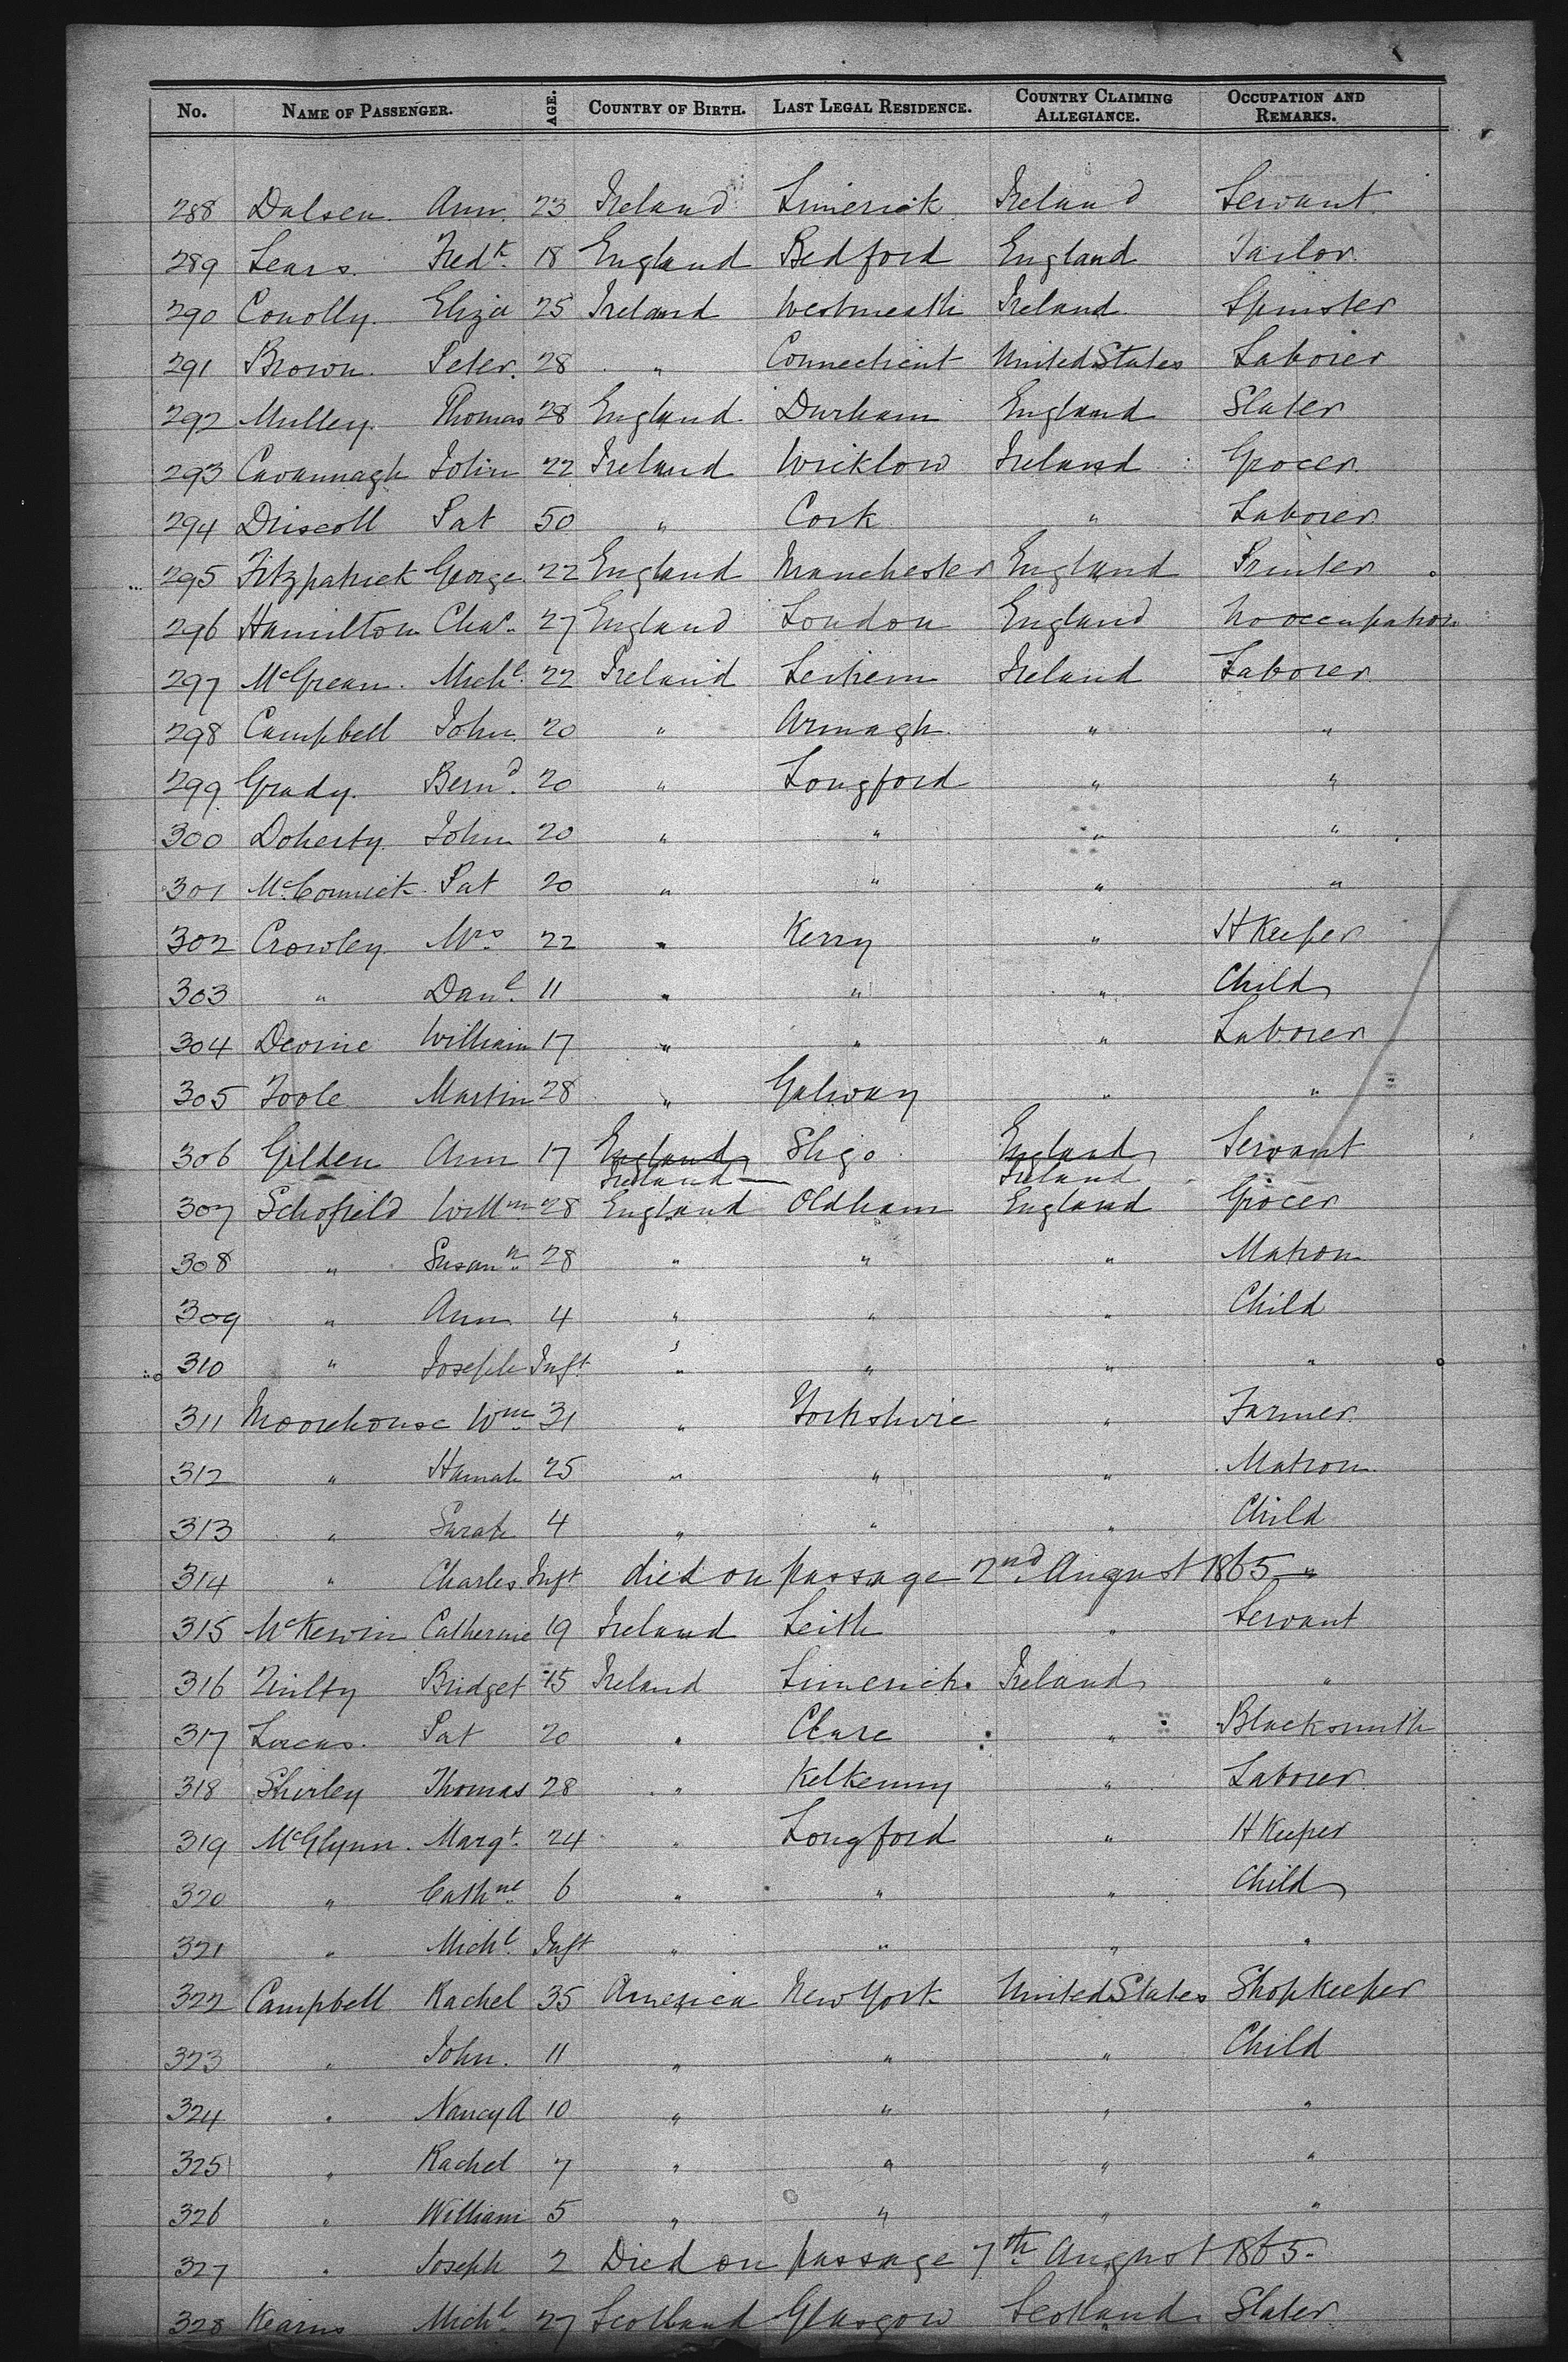 No. NAME OF PASSENGER. AGE. COUNTRY OF BIRTH. LAST LEGAL RESIDENCE. COUNTRY CLAIMING ALLEGIANCE. OCCUPATION AND REMARKS.
288 Dalsen Ann 23 Ireland Limerick Ireland Servant
289 Sears Fredk 18 England Bedford England Tailor
290 Conolly Eliza 25 Ireland Westmeath Ireland Spinster
291 Brown Peter 28 " Connecticut United States Laborer
292 Mulley Thomas 28 England Durham England Slater
293 Cavannagh John 22 Ireland Wicklow Ireland Grocer
294 Driscoll Pat 50 " Cork " Laborer
295 Fitzpatrick George 22 England Manchester England Printer
296 Hamilton Chas 27 England London England No occupation
297 McGrean Michl 22 Ireland Leitrem Ireland Laborer
298 Campbell John 20 " Armagh " "
299 Grady Bernd 20 " Longford " "
300 Doherty John 20 " " " "
301 McCormick Pat 20 " " " "
302 Crowley Mrs 22 " Kerry " H Keeper
303 " Danl 11 " " " Child
304 Devine William 17 " " " Laborer
305 Toole Martin 28 " Galway " "
306 Gilden Ann 17 England Sligo England Servant
Ireland Ireland
307 Schofield Willm 28 England Oldham England Grocer
308 " Susann 28 " " " Matron
309 " Ann 4 " " " Child
310 " Joseph Inft " " " "
311 Moorehouse Wm 31 " Yorkshire " Farmer
312 " Hannah 25 " " " Matron
313 " Sarah 4 " " " Child
314 " Charles Inft died on passage 2nd August 1865 "
315 McKewin Catherine 19 Ireland Leith " Servant
316 Bridget 15 Ireland Limerick Ireland "
317 Lucas Pat 20 " Clare " Blacksmith
318 Shirley Thomas 28 " Kelkenny " Laborer
319 McGlynn Margt 24 " Longford " H Keeper
320 " Cathne 6 " " " Child
321 " Michl Inft " " " "
322 Campbell Rachel 35 America New York United States Shopkeeper
323 " John 11 " " " Child
324 " Nancy A 10 " " " "
325 " Rachel 7 " " " "
326 " William 5 " " " "
327 " Joseph 2 Died on passage 7th August 1865
328 Kearns Michl 27 Scotland Glasgow Scotland Slater